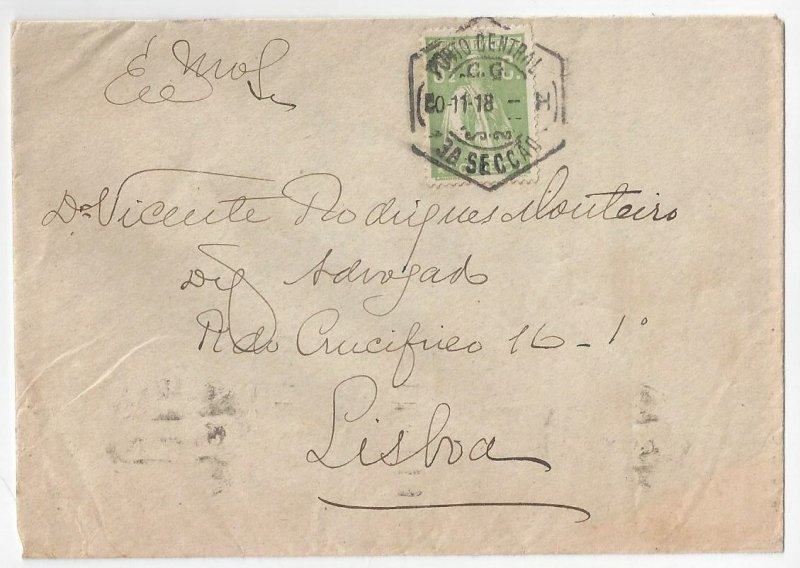 Exmo Sr
PORTO CENTRAL
C.G
0-11-18
3A SECCÃO
Dr Vicente Rodrigues Monteiro
Dig Advogado
R do Crucifixo 16 - 1º
Lisboa